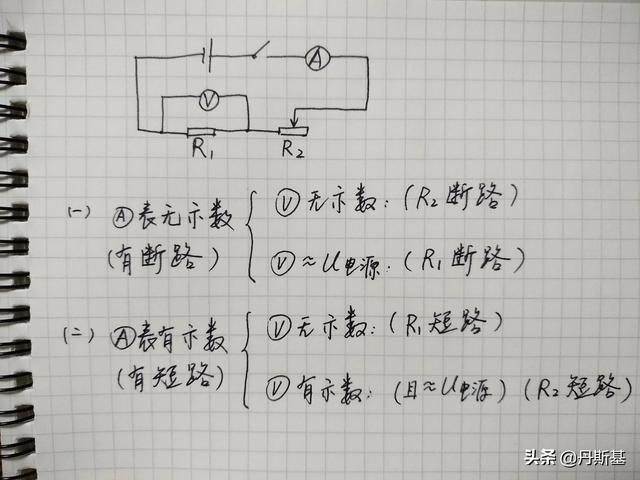 A
V
R1 R2
(一) Ⓐ表无示数 Ⓥ无示数:(R2断路)
(有断路) Ⓥ≈U电源:(R1断路)
(二) Ⓐ表有示数 Ⓥ无示数:(R1短路)
(有短路) Ⓥ有示数:(且≈U电源)(R2短路)
头条@丹斯基